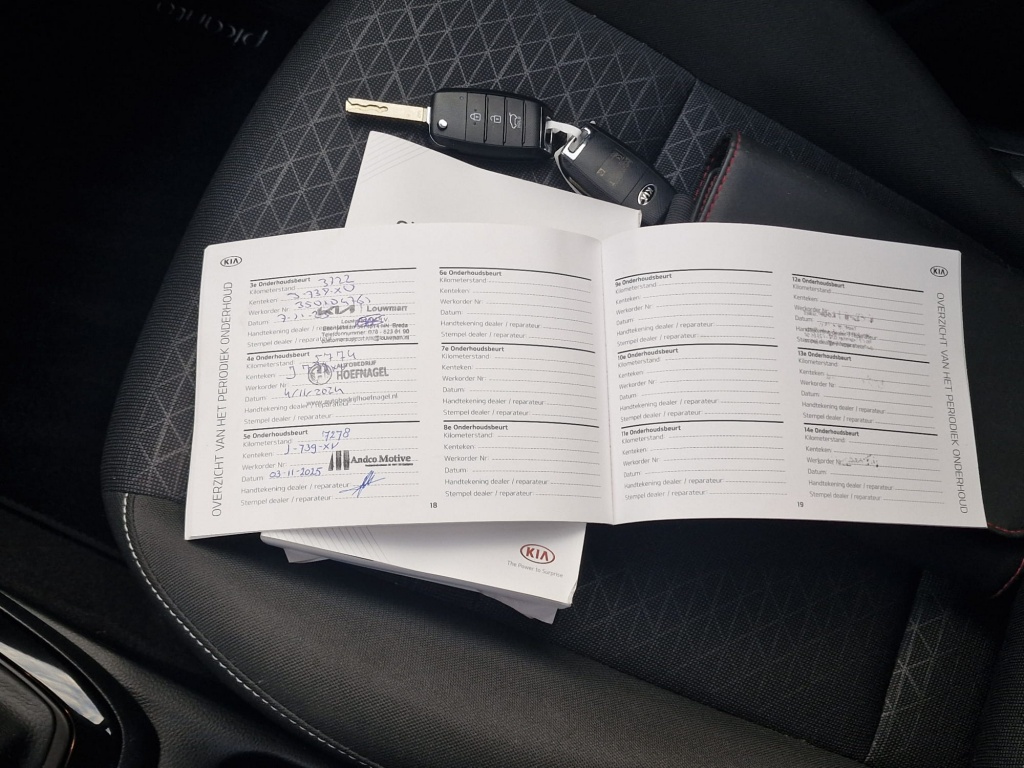 picanto
KIA
OVERZICHT VAN HET PERIODIEK ONDERHOUD
3e Onderhoudsbeurt
Kilometerstand: 3772
Kenteken:
Werkorder Nr:
Datum
Handtekening dealer / reparateur
Stempel dealer / reparateur
KIA Louwman
4e Onderhoudsbeurt
Kilometerstand: 5774
Kenteken:
Werkorder Nr:
Datum: 4/11/2024
Handtekening dealer / reparateur
Stempel dealer / reparateur
AUTOBEDRIJF
HOEFNAGEL
www.autobedrijfhoefnagel.nl
5e Onderhoudsbeurt
Kilometerstand: 7278
Kenteken: J-739-XV
Werkorder Nr:
Andco Motive
Datum: 03-11-2025
Handtekening dealer / reparateur:
Stempel dealer / reparateur:
6e Onderhoudsbeurt
Kilometerstand:
Kenteken:
Werkorder Nr:
Datum:
Handtekening dealer / reparateur:
Stempel dealer / reparateur:
7e Onderhoudsbeurt
Kilometerstand:
Kenteken:
Werkorder Nr:
Datum:
Handtekening dealer / reparateur:
Stempel dealer / reparateur:
8e Onderhoudsbeurt
Kilometerstand:
Kenteken:
Werkorder Nr:
Datum:
Handtekening dealer / reparateur:
Stempel dealer / reparateur:
18
9e Onderhoudsbeurt
Kilometerstand:
Kenteken:
Werkorder Nr:
Datum:
Handtekening dealer / reparateur:
Stempel dealer / reparateur:
10e Onderhoudsbeurt
Kilometerstand:
Kenteken:
Werkorder Nr:
Datum:
Handtekening dealer / reparateur:
Stempel dealer / reparateur:
11e Onderhoudsbeurt
Kilometerstand:
Kenteken:
Werkorder Nr:
Datum:
Handtekening dealer / reparateur:
Stempel dealer / reparateur:
12e Onderhoudsbeurt
Kilometerstand:
Kenteken:
Werkorder Nr:
Datum:
Handtekening dealer / reparateur
Stempel dealer / reparateur
13e Onderhoudsbeurt
Kilometerstand:
Kenteken:
Werkorder Nr:
Datum:
Handtekening dealer / reparateur:
Stempel dealer / reparateur:
14e Onderhoudsbeurt
Kilometerstand:
Kenteken:
Werkorder Nr:
Datum:
Handtekening dealer / reparateur:
Stempel dealer / reparateur:
19
KIA
OVERZICHT VAN HET PERIODIEK ONDERHOUD
KIA
The Power to Surprise
KIA